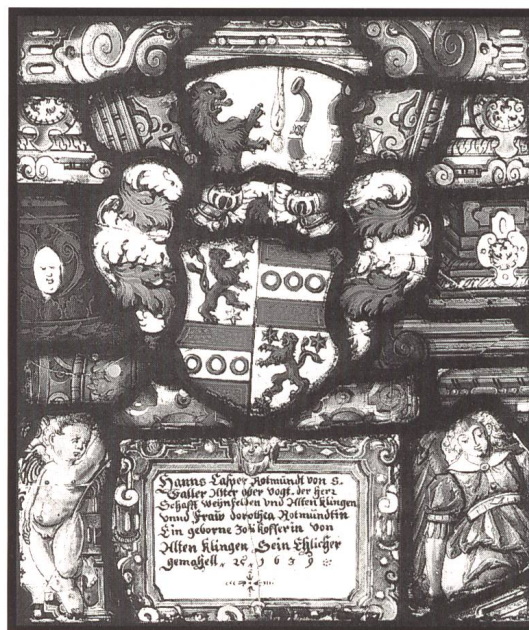 Hanns Casper Rotmundt von S.
Galler Alter ober vogt. der herr
Schafft Weynfelden vnd Alten Klingen
vnnd Fraw dorothea Rotmundtin
Ein geborne Zolikofferin von
Alten Klingen Sein Ehlicher
gemahell. 1639